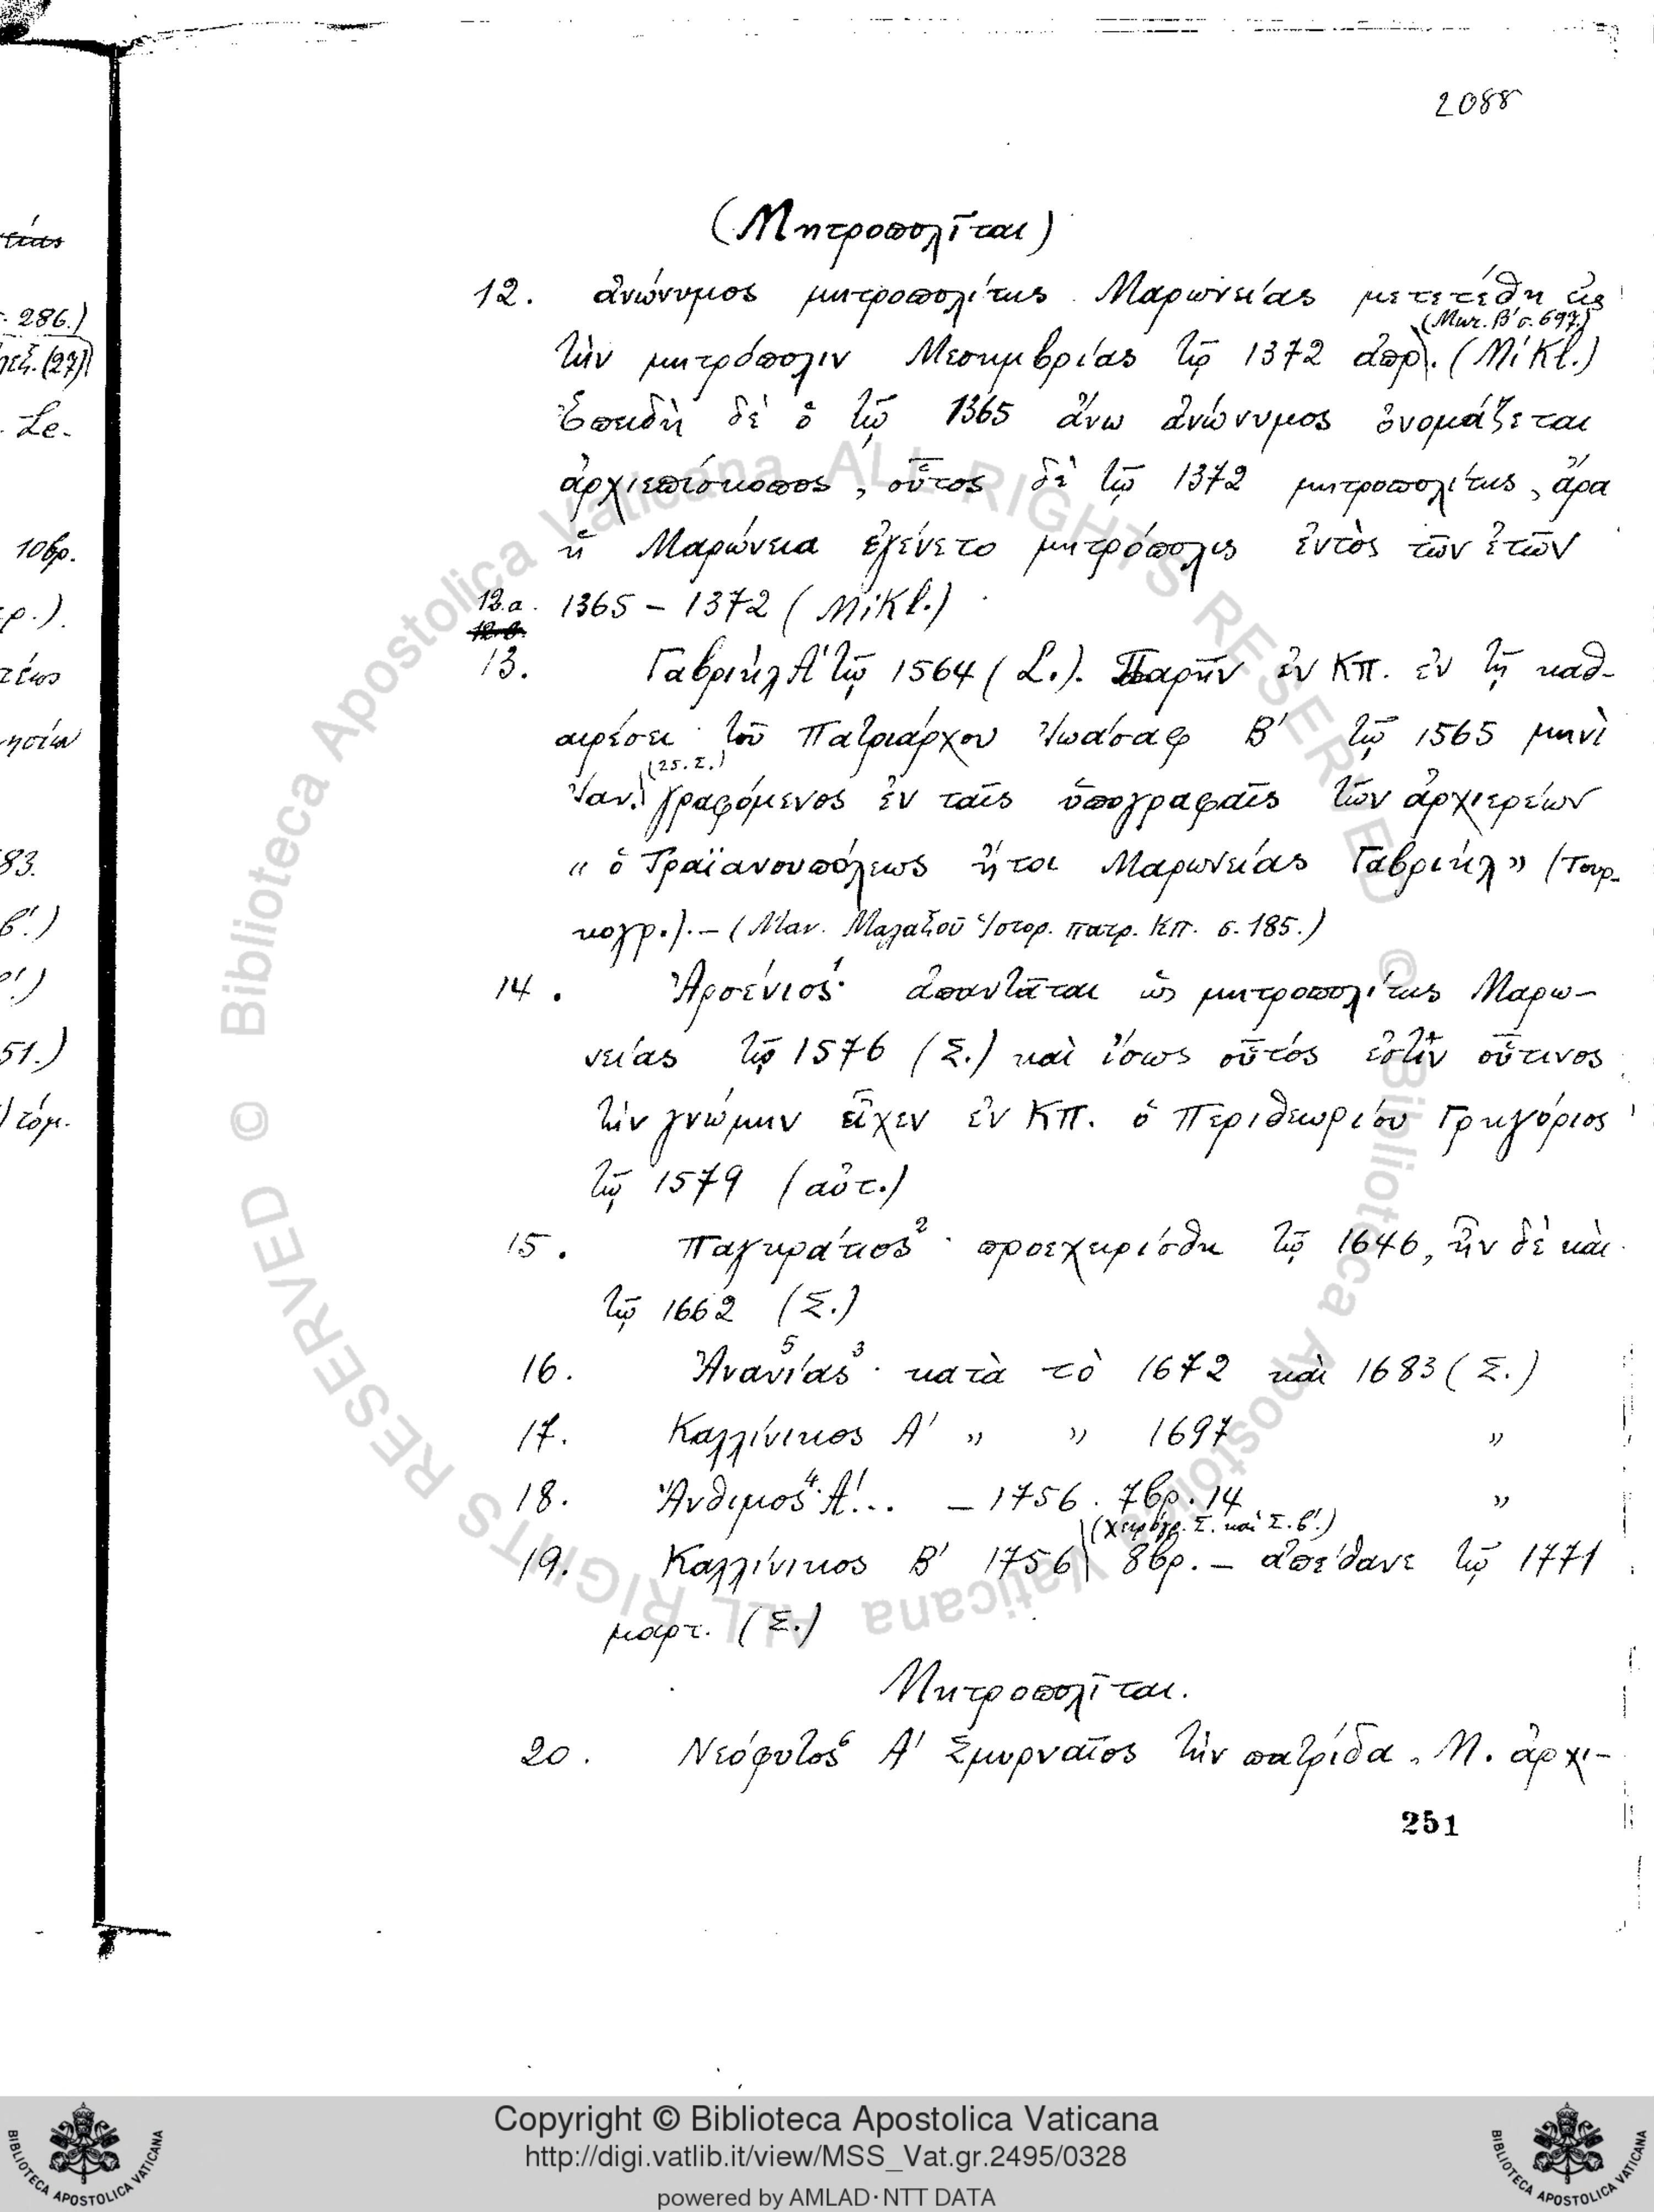 2088
(Μητροπολῖται)
12. ἀνώνυμος μητροπολίτης Μαρωνείας μετετέθη εἰς
(Μικ. Β' σ. 697.)
τὴν μητρόπολιν Μεσημβρίας τῷ 1372 ἀπρ. (Mikl.)
Ἐπειδὴ δὲ ὁ τῷ 1365 ἄνω ἀνώνυμος ὀνομάζεται
ἀρχιεπίσκοπος, οὗτος δὲ τῷ 1372 μητροπολίτης, ἄρα
ἡ Μαρώνεια ἐγένετο μητρόπολις ἐντὸς τῶν ἐτῶν
12.a. 1365 – 1372 (Mikl.)
13. Γαβριὴλ Α' τῷ 1564 (L.). Παρῆν ἐν ΚΠ. ἐν τῇ καθ-
αιρέσει τοῦ Πατριάρχου Ἰωάσαφ Β' τῷ 1565 μηνὶ
(25. Σ.)
Ἰαν. γραφόμενος ἐν ταῖς ὑπογραφαῖς τῶν ἀρχιερέων
« ὁ Τραϊανουπόλεως ἤτοι Μαρωνείας Γαβριὴλ» (Τουρ-
κογρ.). – (Μαν. Μαλαξοῦ Ἱστορ. πατρ. ΚΠ. σ. 185.)
14. Ἀρσένιος¹· ἀπαντᾶται ὡς μητροπολίτης Μαρω-
νείας τῷ 1576 (Σ.) καὶ ἴσως οὗτός ἐστιν οὗτινος
τὴν γνώμην εἶχεν ἐν ΚΠ. ὁ Περιθεωρίου Γρηγόριος
τῷ 1579 (αὐτ.)
15. Παγκράτιος²· προεχειρίσθη τῷ 1646, ἦν δὲ καὶ
τῷ 1662 (Σ.)
16. Ἀνανίας⁵ ³· κατὰ τὸ 1672 καὶ 1683 (Σ.)
17. Καλλίνικος Α' » » 1697 »
18. Ἄνθιμος⁴· Α'... – 1756. 7βρ. 14 »
(χειρόγρ. Σ. καὶ Σ. β'.)
19. Καλλίνικος Β' 1756 8βρ. – ἀπέθανε τῷ 1771
μαρτ. (Σ.)
Μητροπολῖται.
20. Νεόφυτος⁶ Α' Σμυρναῖος τὴν πατρίδα. Μ. ἀρχι-
251
. 286.)
(27)
-Le-
10βρ.
ρ.).
τέως
83.
β'.)
51.)
τόμ.
© Biblioteca Apostolica Vaticana ALL RIGHTS RESERVED © Biblioteca Apostolica Vaticana ALL RIGHTS RESERVED
Copyright © Biblioteca Apostolica Vaticana
http://digi.vatlib.it/view/MSS_Vat.gr.2495/0328
powered by AMLAD·NTT DATA
BIBLIOTECA APOSTOLICA VATICANA
BIBLIOTECA APOSTOLICA VATICANA